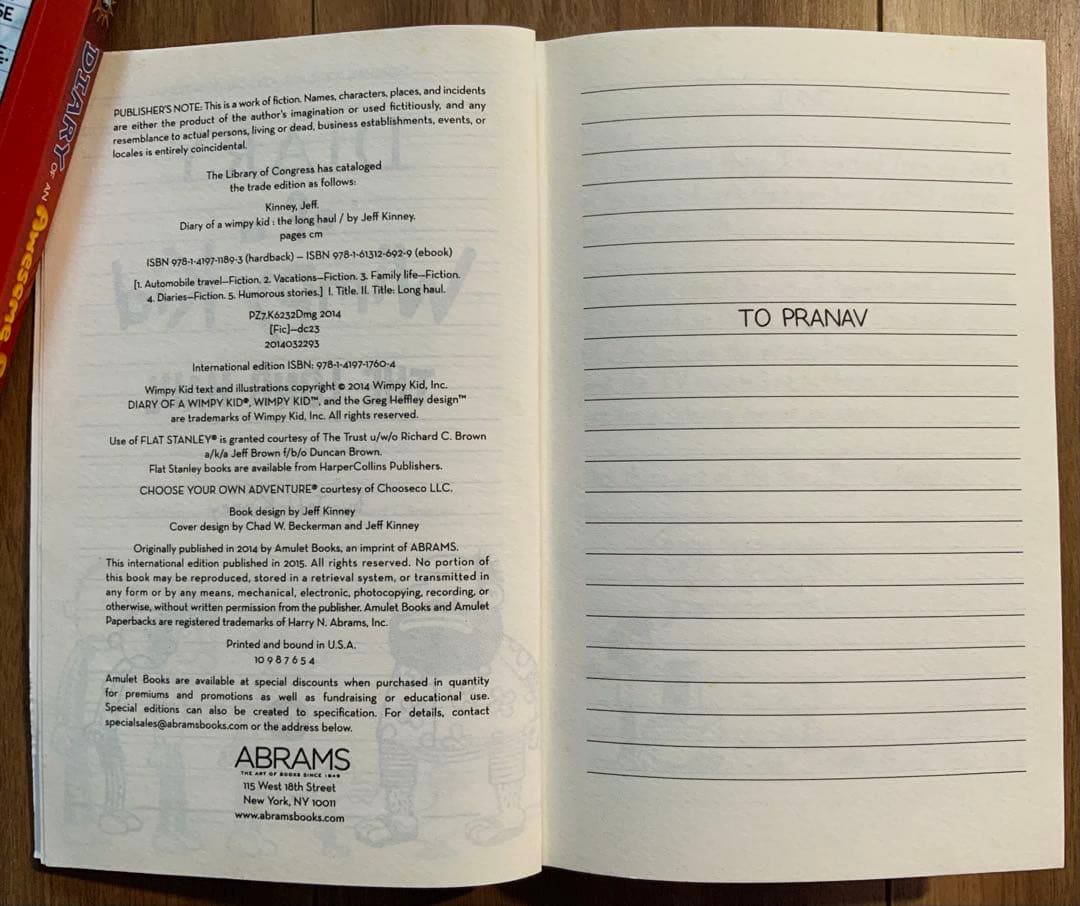 DIARY
OF AN
AWESOME
PUBLISHER'S NOTE: This is a work of fiction. Names, characters, places, and incidents
are either the product of the author's imagination or used fictitiously, and any
resemblance to actual persons, living or dead, business establishments, events, or
locales is entirely coincidental.
The Library of Congress has cataloged
the trade edition as follows:
Kinney, Jeff.
Diary of a wimpy kid : the long haul / by Jeff Kinney.
pages cm
ISBN 978-1-4197-1189-3 (hardback) — ISBN 978-1-61312-692-9 (ebook)
[1. Automobile travel—Fiction. 2. Vacations—Fiction. 3. Family life—Fiction.
4. Diaries—Fiction. 5. Humorous stories.] I. Title. II. Title: Long haul.
PZ7.K6232Dmg 2014
[Fic]—dc23
2014032293
International edition ISBN: 978-1-4197-1760-4
Wimpy Kid text and illustrations copyright © 2014 Wimpy Kid, Inc.
DIARY OF A WIMPY KID®, WIMPY KID™, and the Greg Heffley design™
are trademarks of Wimpy Kid, Inc. All rights reserved.
Use of FLAT STANLEY® is granted courtesy of The Trust u/w/o Richard C. Brown
a/k/a Jeff Brown f/b/o Duncan Brown.
Flat Stanley books are available from HarperCollins Publishers.
CHOOSE YOUR OWN ADVENTURE® courtesy of Chooseco LLC.
Book design by Jeff Kinney
Cover design by Chad W. Beckerman and Jeff Kinney
Originally published in 2014 by Amulet Books, an imprint of ABRAMS.
This international edition published in 2015. All rights reserved. No portion of
this book may be reproduced, stored in a retrieval system, or transmitted in
any form or by any means, mechanical, electronic, photocopying, recording, or
otherwise, without written permission from the publisher. Amulet Books and Amulet
Paperbacks are registered trademarks of Harry N. Abrams, Inc.
Printed and bound in U.S.A.
10 9 8 7 6 5 4
Amulet Books are available at special discounts when purchased in quantity
for premiums and promotions as well as fundraising or educational use.
Special editions can also be created to specification. For details, contact
specialsales@abramsbooks.com or the address below.
ABRAMS
THE ART OF BOOKS SINCE 1949
115 West 18th Street
New York, NY 10011
www.abramsbooks.com
TO PRANAV